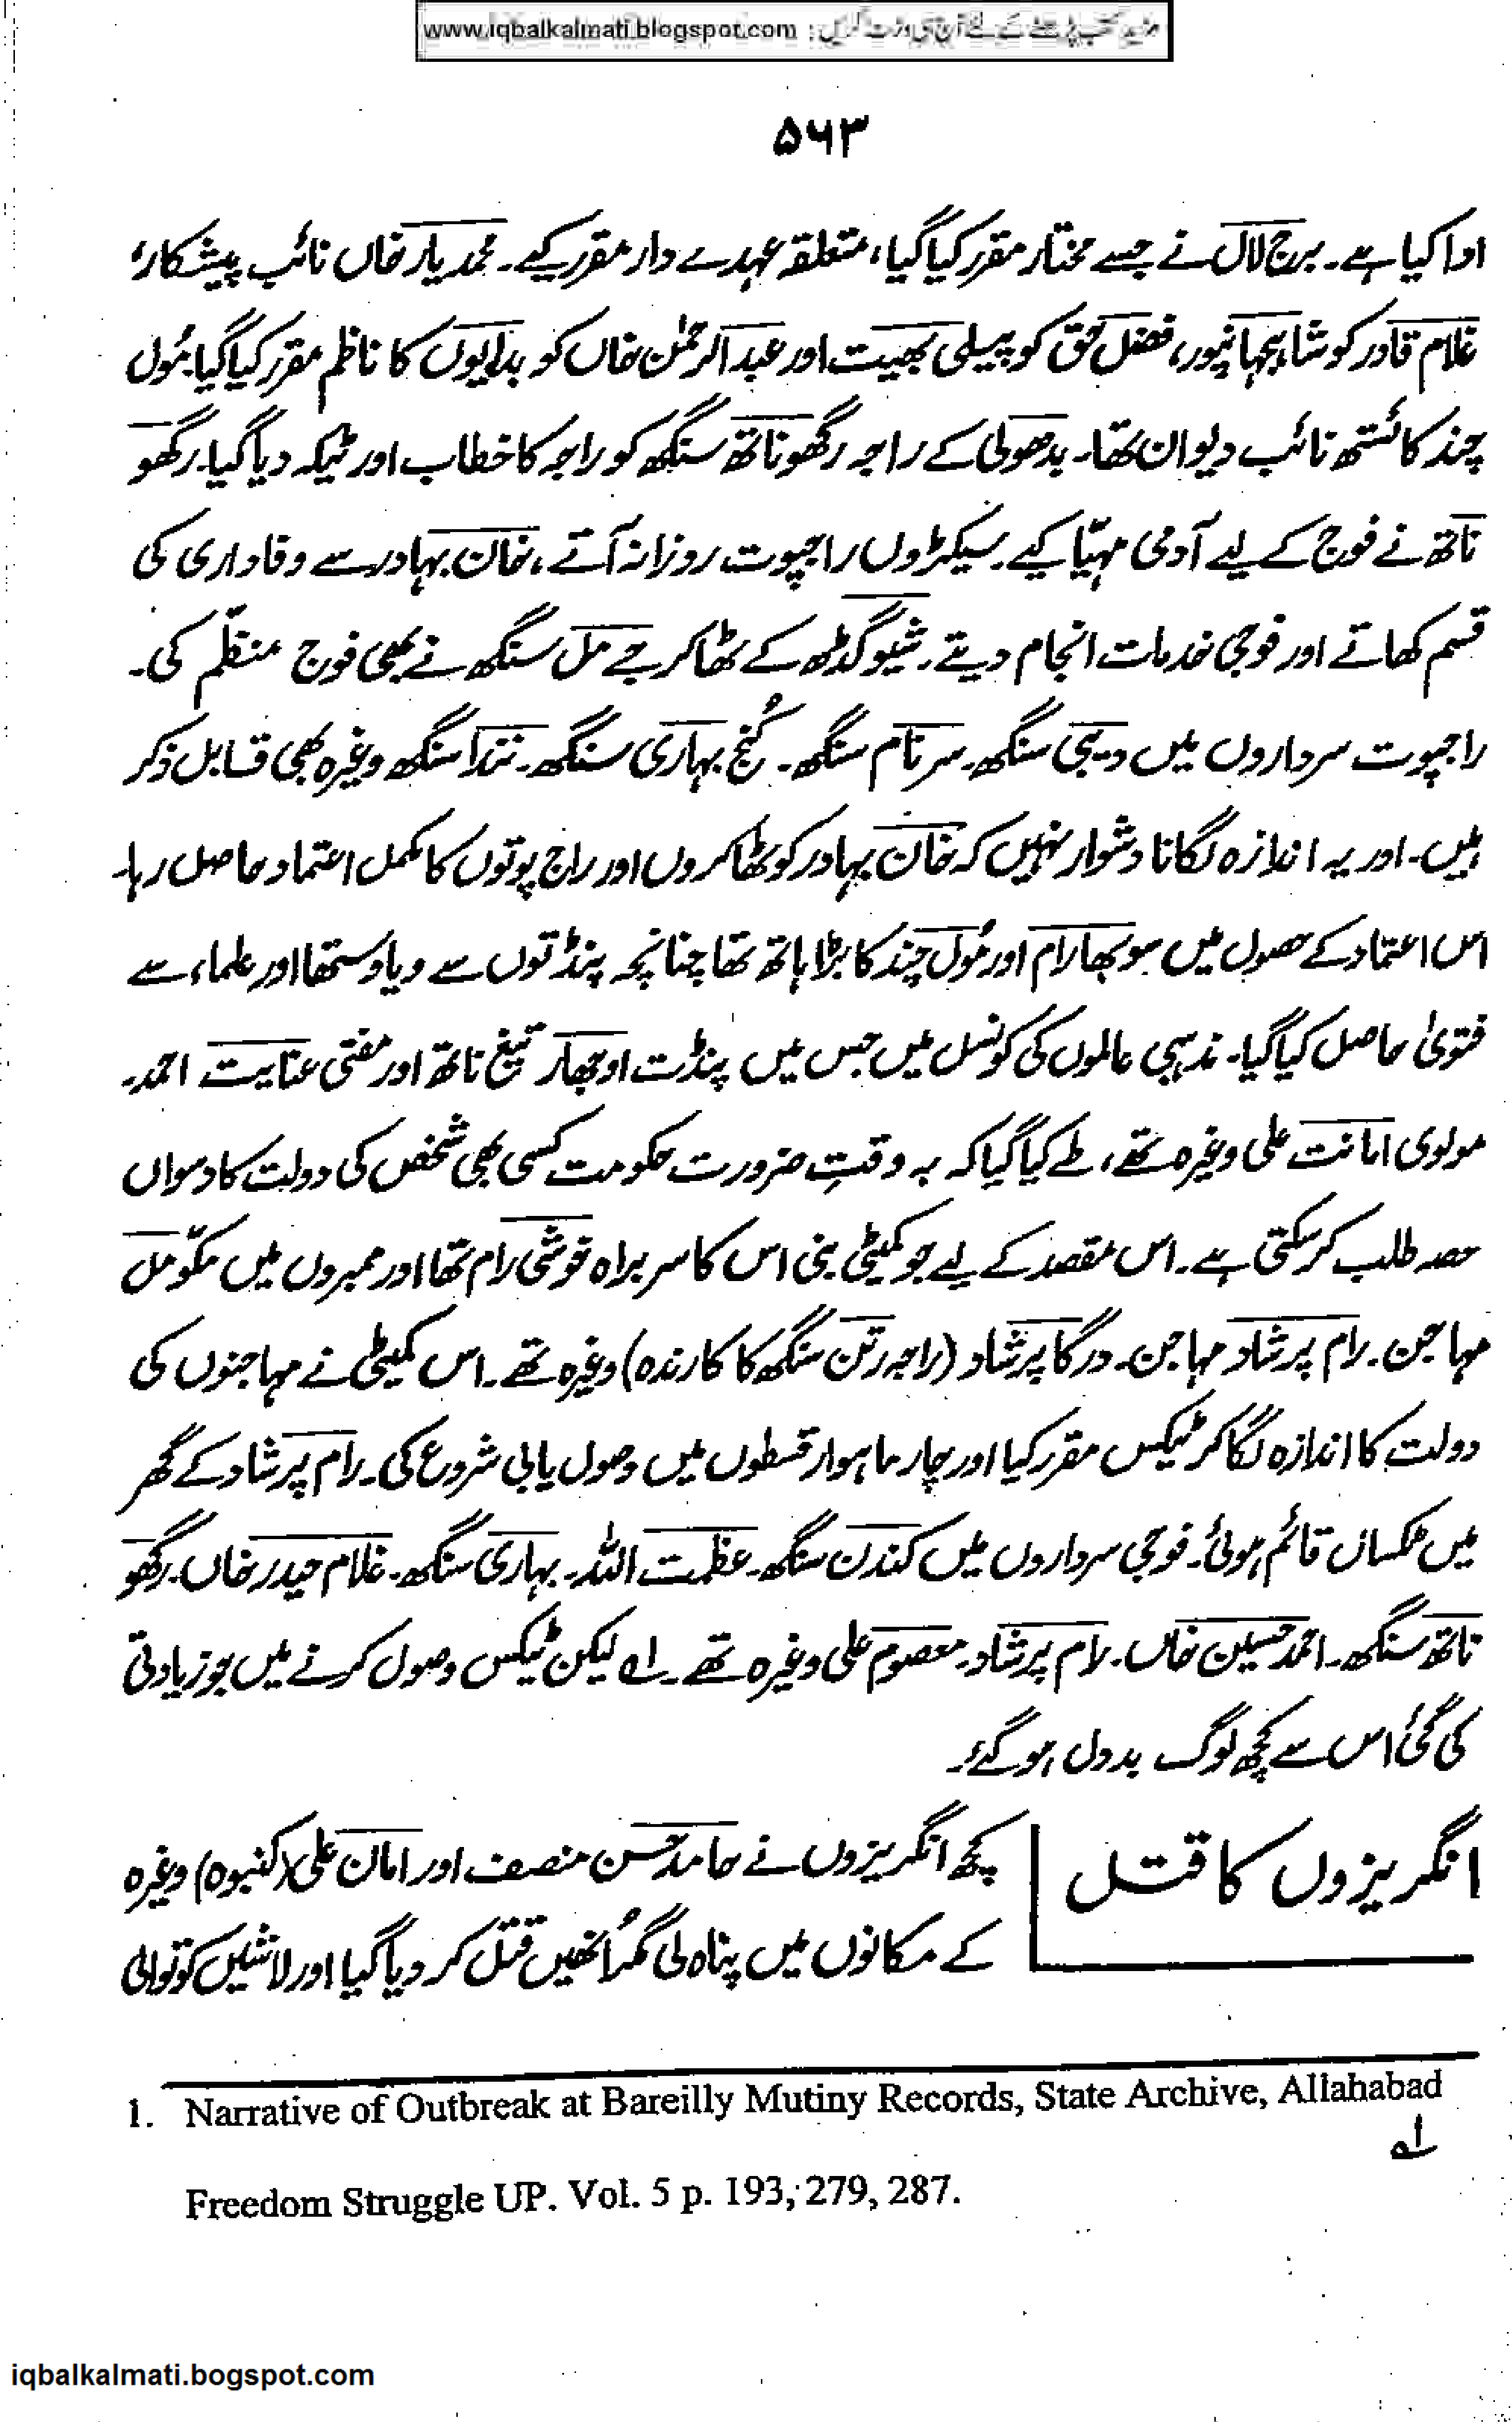 مزید کتب پڑھنے کے لئے آج ہی وزٹ کریں : www.iqbalkalmati.blogspot.com
۵۶۳
ادا کیا ہے۔ برج لال نے جسے مختار مقرر کیا گیا، متعلقہ عہدے دار مقرر کیے۔ محمد یار خاں نائب پیشکار،
غلام قادر کو شاہجہانپور، فضل حق کو پیلی بھیت اور عبدالرحمٰن خاں کو بدایوں کا ناظم مقرر کیا گیا۔ مُول
چند کائستھ نائب دیوان تھا۔ بدھولی کے راجہ رگھوناتھ سنگھ کو راجہ کا خطاب اور ٹیکہ دیا گیا۔ رگھو
ناتھ نے فوج کے لیے آدمی مہیّا کیے۔ سیکڑوں راجپوت روزانہ آتے، خان بہادر سے وفاداری کی
قسم کھاتے اور فوجی خدمات انجام دیتے۔ شیوگڈھ کے ٹھاکر جے مل سنگھ نے بھی فوج منظّم کی۔
راجپوت سرداروں میں دیبی سنگھ۔ سرنام سنگھ۔ کُنج بہاری سنگھ۔ نندا سنگھ وغیرہ بھی قابل ذکر
ہیں۔ اور یہ اندازہ لگانا دشوار نہیں کہ خان بہادر کو ٹھاکروں اور راج پوتوں کا مکمل اعتماد حاصل رہا۔
اس اعتماد کے حصول میں سوبھا رام اور مُول چند کا بڑا ہاتھ تھا چنانچہ پنڈتوں سے ویاوستھا اور علماء سے
فتویٰ حاصل کیا گیا۔ مذہبی عالموں کی کونسل میں جس میں پنڈت اوجھار تیغ ناتھ اور مفتی عنایت احمد۔
مولوی امانت علی وغیرہ تھے، طے کیا گیا کہ بہ وقتِ ضرورت حکومت کسی بھی شخص کی دولت کا دسواں
حصہ طلب کر سکتی ہے۔ اس مقصد کے لیے جو کمیٹی بنی اس کا سربراہ خوشی رام تھا اور ممبروں میں مکّو مل
مہاجن۔ رام پرشاد مہاجن۔ درگا پرشاد (راجہ رتن سنگھ کا کارندہ) وغیرہ تھے۔ اس کمیٹی نے مہاجنوں کی
دولت کا اندازہ لگا کر ٹیکس مقرر کیا اور چار ماہوار قسطوں میں وصول یابی شروع کی۔ رام پرشاد کے گھر
میں ٹکسال قائم ہوئی۔ فوجی سرداروں میں کندن سنگھ۔ عظمت اللہ۔ بہاری سنگھ۔ غلام حیدر خاں۔ رگھو
ناتھ سنگھ۔ احمد حسین خاں۔ رام پرشاد۔ معصوم علی وغیرہ تھے۔ ۱ لیکن ٹیکس وصول کرنے میں جو زیادتی
کی گئی اس سے کچھ لوگ بددل ہو گئے۔
انگریزوں کا قتل
کچھ انگریزوں نے حامد حسن منصف اور امان علی (کنبوہ) وغیرہ
کے مکانوں میں پناہ لی مگر اُنھیں قتل کر دیا گیا اور لاشیں کوتوالی
1. Narrative of Outbreak at Bareilly Mutiny Records, State Archive, Allahabad
۱
Freedom Struggle UP. Vol. 5 p. 193, 279, 287.
iqbalkalmati.bogspot.com